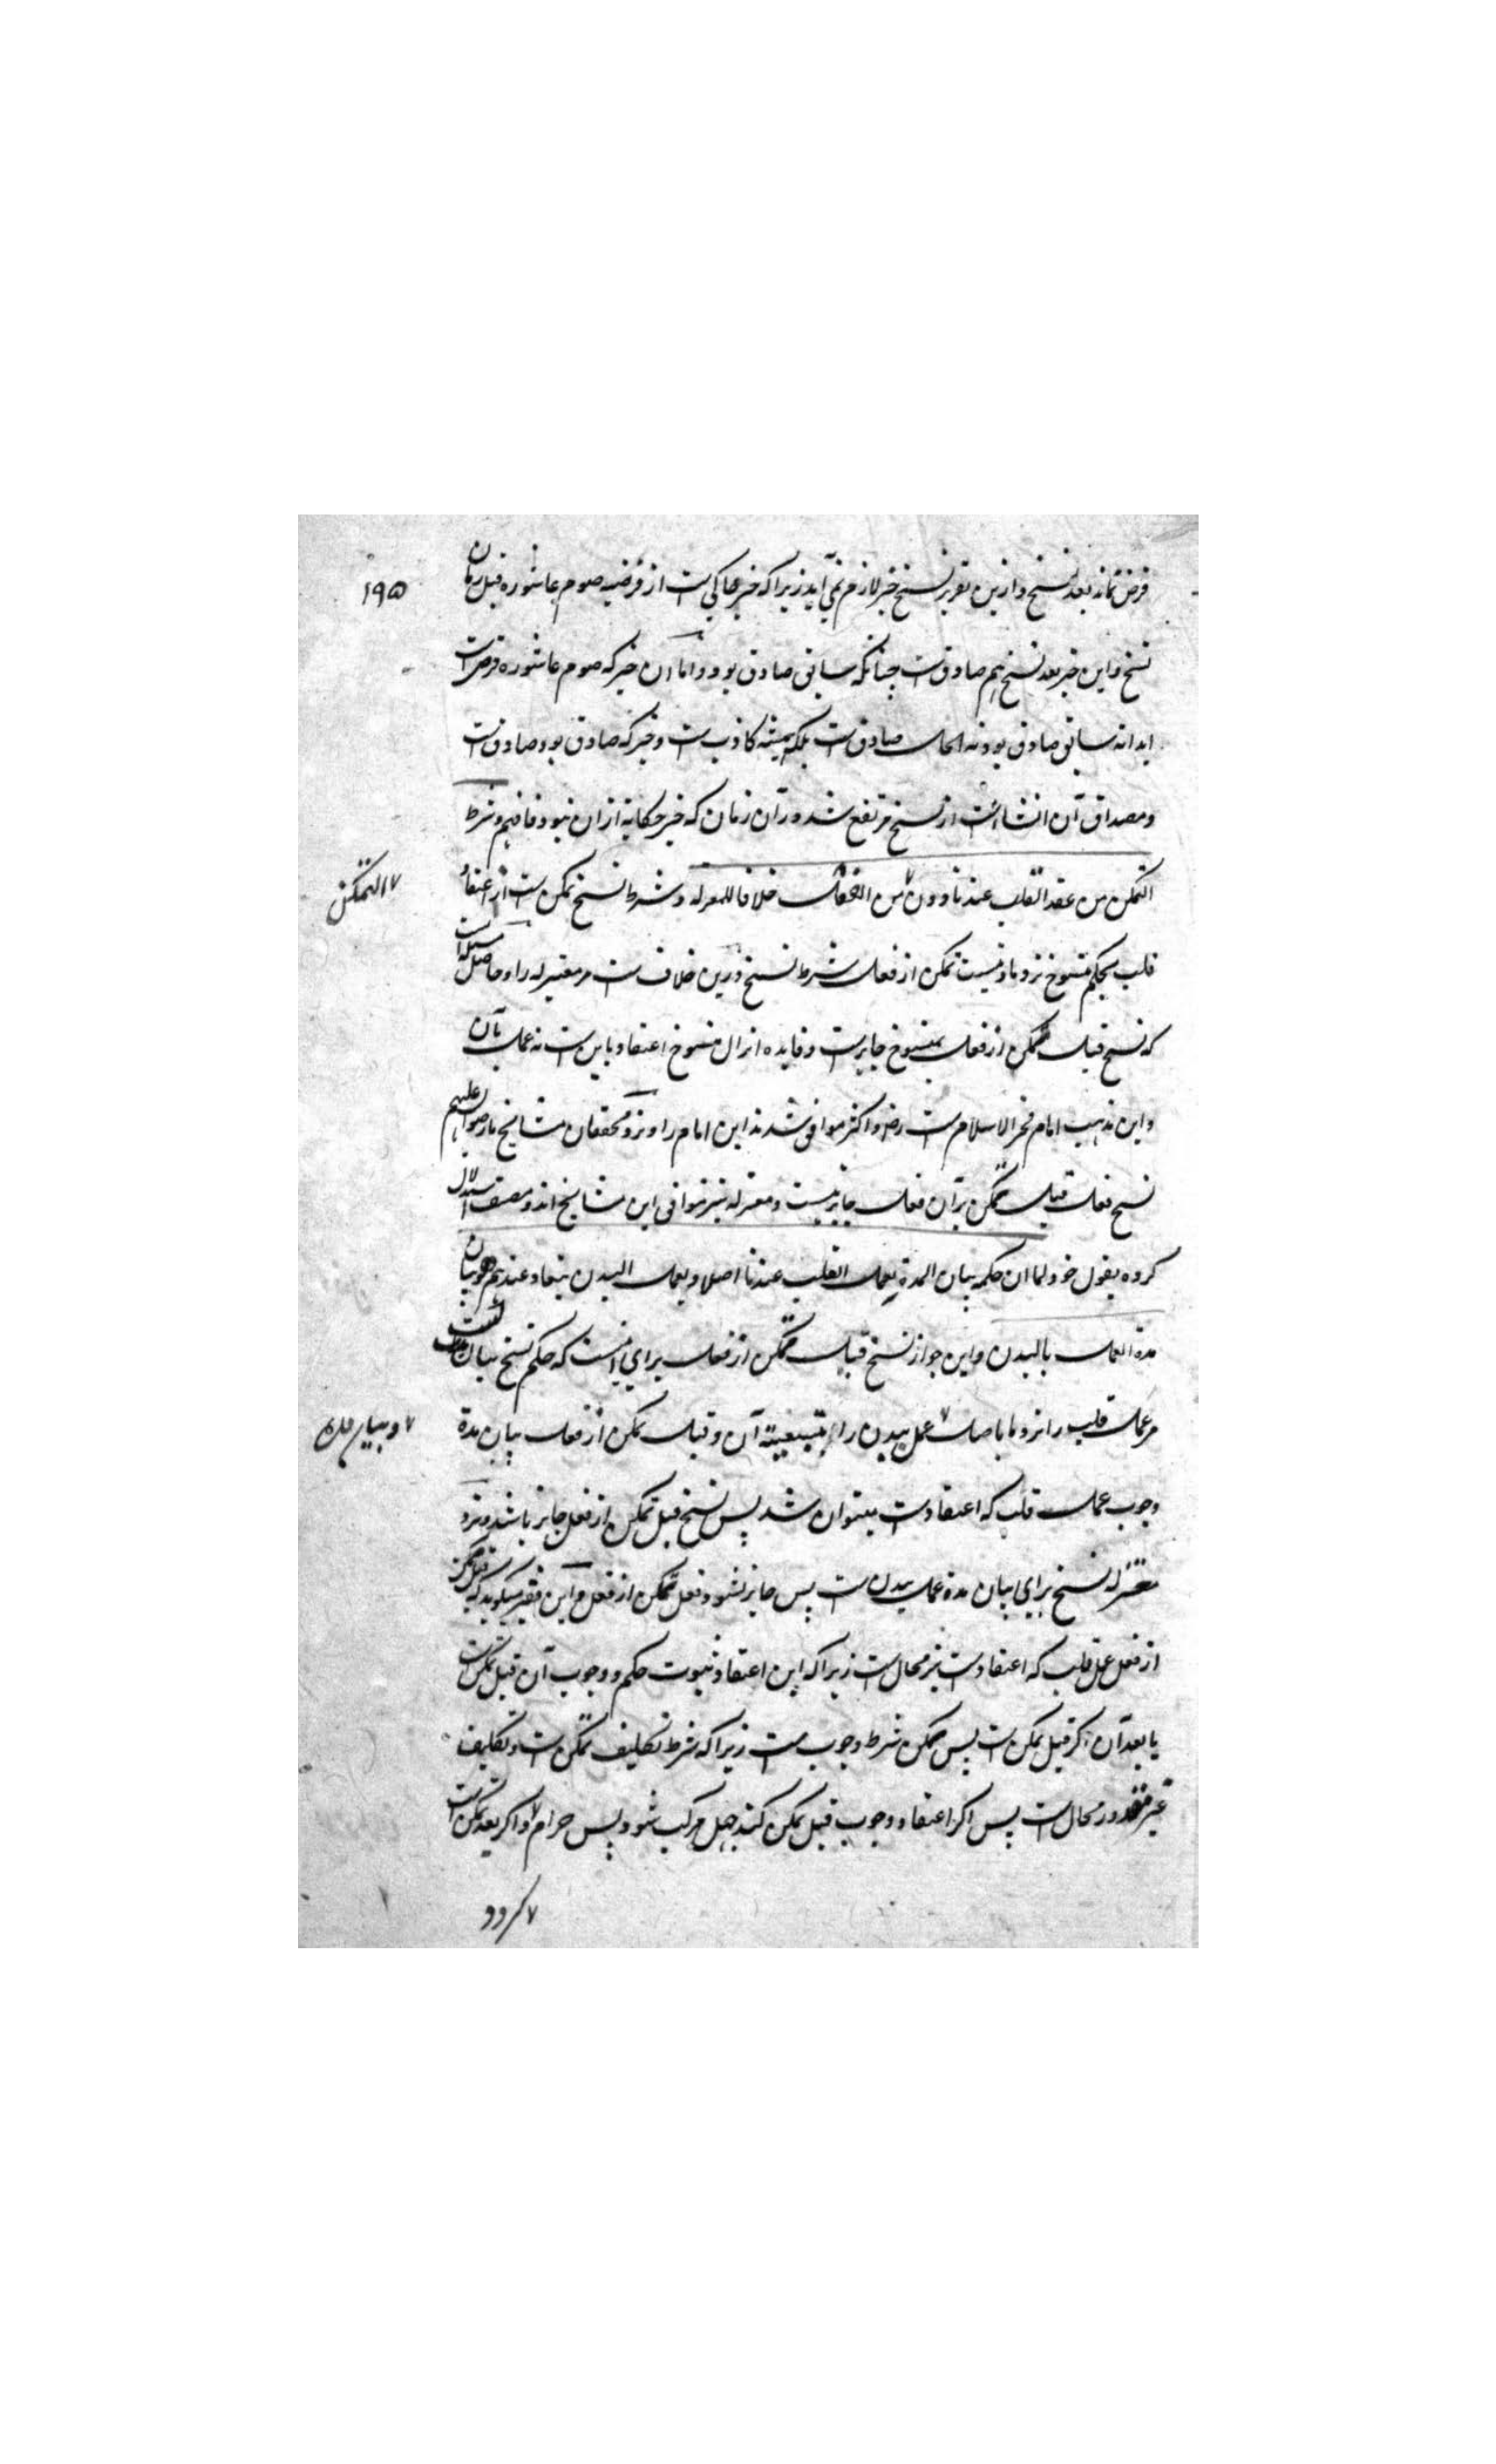 ۱۹۵
فرض نماند بعد نسخ و ازین تقریر نسخ خبر لازم نمی آید زیرا که خبر حاکی ست از فرضیه صوم عاشوره قبل زمان
نسخ و این خبر بعد نسخ هم صادق ست چنانکه سابق صادق بود و اما این خبر که صوم عاشوره فرض ست
ابدا نه سابق صادق بود نه الحال صادق ست بلکه همیشه کاذب ست و خبر که صادق بود صادق ست
و مصداق آن انشا است از نسخ مرتفع شد در آن زمان که خبر حکایة ازان نبود فافهم و شرط
التمکن من عقد القلب عندنا دون ۷ من الفعل خلافا للمعتزله و شرط نسخ تمکن ست از اعتقاد
۷ التمکن
قلب بحکم منسوخ نزد ما و نیست تمکن از فعل شرط نسخ درین خلاف ست مر معتزله را و حاصل مسئله است
که نسخ قبل تمکن از فعل بمنسوخ جایز ست و فایده انزال منسوخ اعتقاد باین ست نه عمل بآن
و این مذهب امام فخر الاسلام ست رض و اکثر موافق شدند این امام را و نزد محققان مشایخ ما رضوان علیهم
نسخ فعل قبل تمکن بر آن فعل جایز نیست و معتزله نیز موافق این مشایخ اند و مصنف استدلال
کرده بقول خود لما ان حکمه بیان المدة بعمل القلب عندنا اصلا و بعمل البدن تبعا و عندهم هو بیان
مدة العمل بالبدن و این جواز نسخ قبل تمکن از فعل برای اینست که حکم نسخ بیان مدت
مر عمل قلب را نزد ما باصالت ۷ عمل بدن را بتبعیته آن و قبل تمکن از فعل بیان مدة
۷ و بیان مدة
وجوب عمل قلب که اعتقاد ست میتوان شد پس نسخ قبل تمکن از فعل جایز باشد و نزد
معتزله نسخ برای بیان مدة عمل بدن ست پس جایز نشود قبل تمکن از فعل و این فقیر میگوید که قبل تمکن
از فعل عمل قلب که اعتقاد ست نیز محال ست زیرا که این اعتقاد ثبوت حکم و وجوب آن قبل تمکن ست
یا بعد آن اگر قبل تمکن ست پس تمکن شرط وجوب ست زیرا که شرط تکلیف تمکن ست و تکلیف
غیر مقدور محال ست پس اگر اعتقاد وجوب قبل تمکن کند جهل مرکب شود پس حرام ۷ و اگر بعد تمکن است
۷ گردد